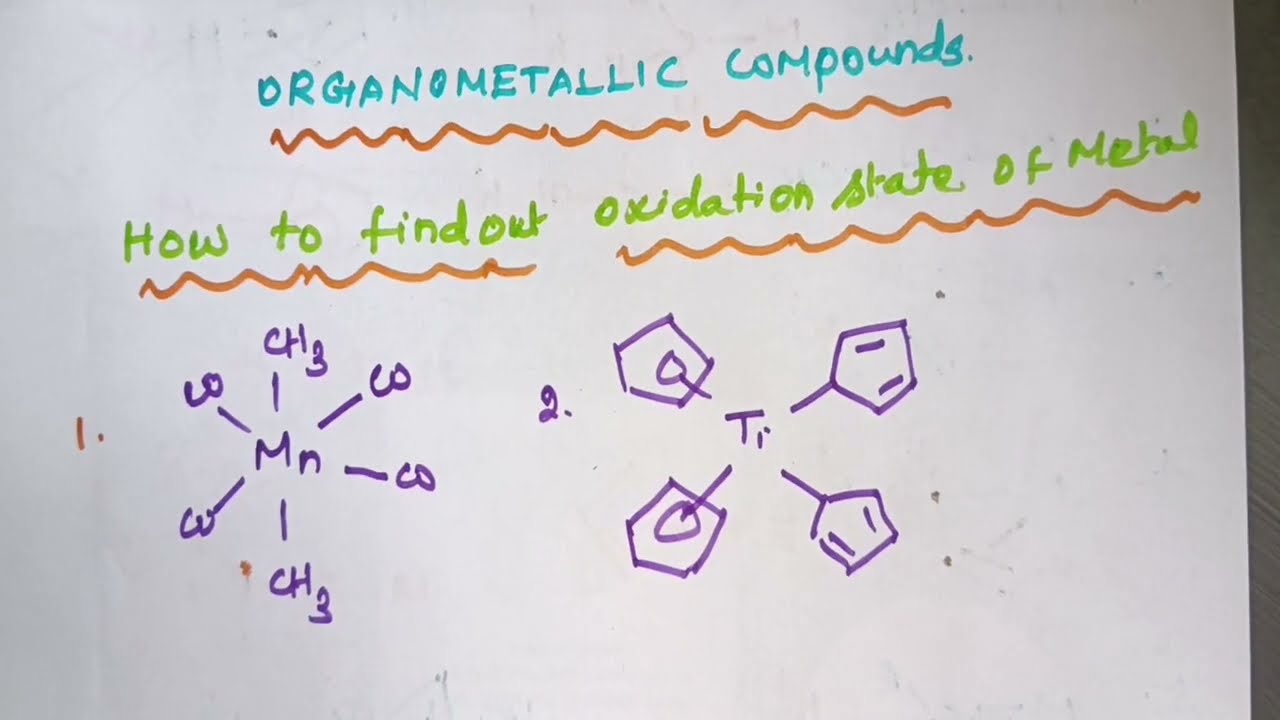 ORGANOMETALLIC Compounds.
How to find out oxidation state of Metal
1.
CH3
CO CO
Mn
CO CO
CH3
2.
Ti